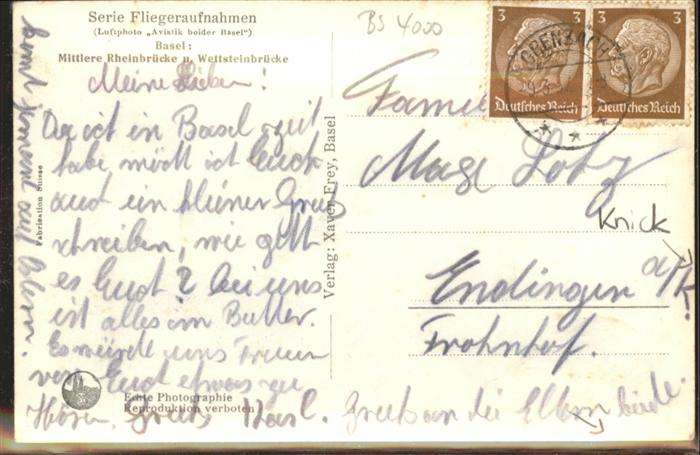 Serie Fliegeraufnahmen
(Luftphoto „Avistik beider Basel")
Basel:
Mittlere Rheinbrücke u. Wettsteinbrücke
BS 4000
Meine Lieben!
Da ich in Basel zeit
habe, möcht ich Euch
auch ein kleiner Gruß
schreiben, wie geht
es Euch? bei uns
ist alles im Butter.
Es würde uns Freuen
von Euch etwas zu
Hören. Gruss Karl. Gruss an die Eltern beide.
Fabrication Suisse
Verlag: Xaver Frey, Basel
Echte Photographie
Reproduktion verboten
3 3
Deutsches Reich
3 3
Deutsches Reich
GRENZACH
Familie
Max Lotz
Knick
Endingen a/K.
Frohnhof.